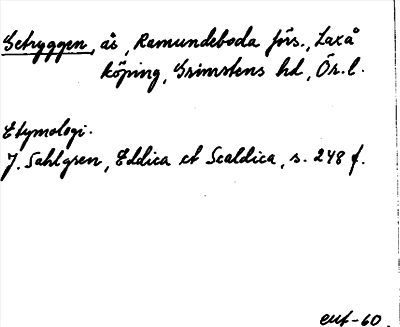 Getryggen, ås, Ramundeboda förs., Laxå
köping, Grimstens hd, Ör. l.
Etymologi.
J. Sahlgren, Eddica et Scaldica, s. 248 f.
euf-60.